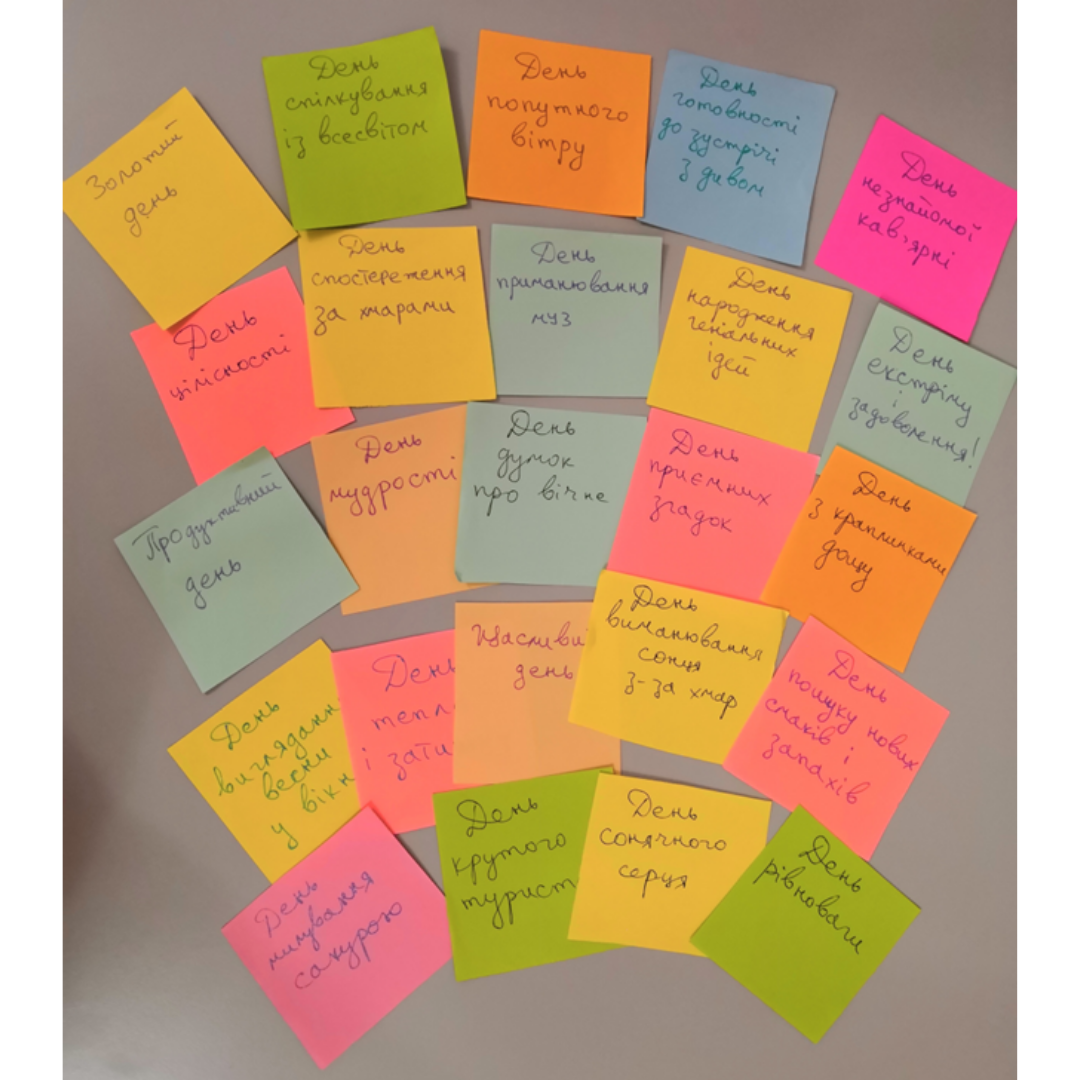 Золотий
день
День
спілкування
із всесвітом
День
попутного
вітру
День
готовності
до зустрічі
з дивом
День
незнайомої
кав'ярні
День
цілісності
День
спостереження
за хмарами
День
приманювання
муз
День
народження
геніальних
ідей
День
екстріму
і
задоволення!
Продуктивний
день
День
мудрості
День
думок
про вічне
День
приємних
згадок
День
з краплинками
дощу
День
виглядан
весни
у вікн
День
тепл
і зати
Щасливи
день
День
виманювання
сонця
з-за хмар
День
пошуку нових
смаків і
запахів
День
милування
сакурою
День
крутого
турист
День
сонячного
серця
День
рівноваги